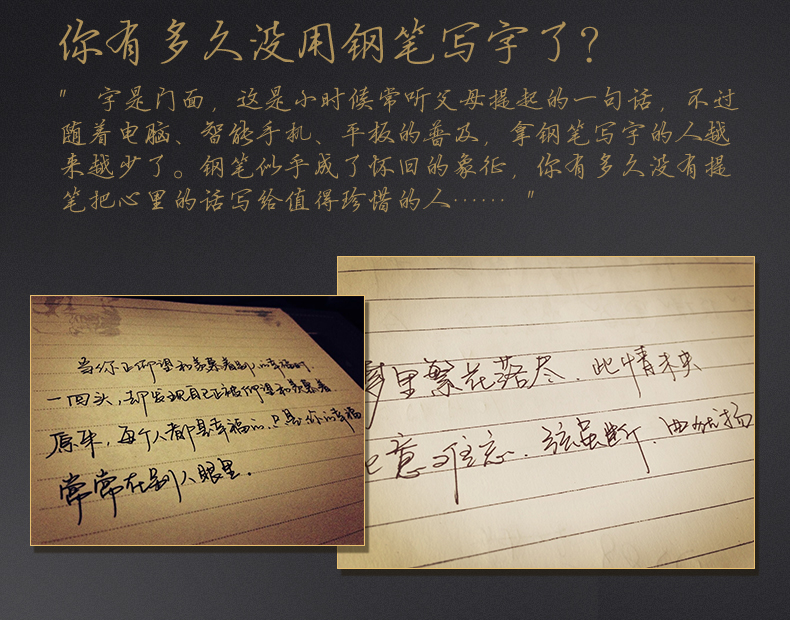 你有多久没用钢笔写字了?
" 字是门面，这是小时候常听父母提起的一句话，不过
随着电脑、智能手机、平板的普及，拿钢笔写字的人越
来越少了。钢笔似乎成了怀旧的象征，你有多久没有提
笔把心里的话写给值得珍惜的人…… "
当你正仰望和羡慕着别人的幸福时，
一回头，却发现自己正被仰望和羡慕着
原来，每个人都是幸福的，只是你的幸福
常常在别人眼里．
梦里繁花落尽．此情未央
此意难忘．弦虽断．曲犹扬